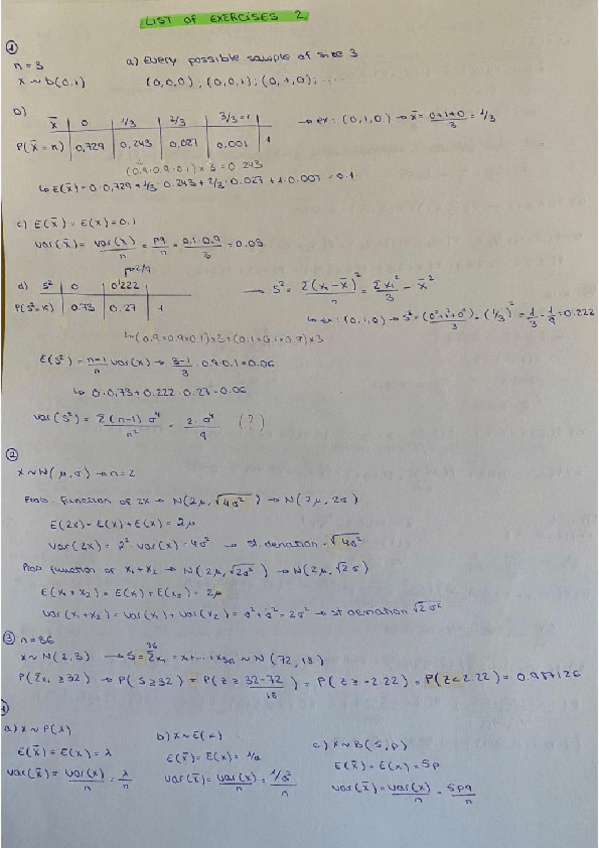 LIST OF EXERCISES 2
①
n = 3
a) Every possible sample of size 3
x ~ b(0.1)
(0,0,0), (0,0,1); (0,1,0); ....
b)
x̄ | 0 | 1/3 | 2/3 | 3/3=1
→ ex: (0,1,0) → x̄ = (0+1+0)/3 = 1/3
P(x̄ = n) | 0,729 | 0,243 | 0,027 | 0,001 | 1
(0.9·0.9·0.1) × 3 = 0.243
↳ E(x̄) = 0·0,729 + 1/3·0.243 + 2/3·0.027 + 1·0.001 = 0.1
c) E(x̄) = E(x) = 0.1
Var(x̄) = Var(x)/n = pq/n = 0.1·0.9/3 = 0.03
p=2/9
d) S² | 0 | 0'222
→ S² = Σ(xi - x̄)²/n = Σxi²/3 - x̄²
P(S²=x) | 0.73 | 0.27 | 1
↳ ex: (0,1,0) → S² = (0²+1²+0²)/3 - (1/3)² = 1/3 - 1/9 = 0.222
↳ (0.9×0.9×0.1)×3 + (0.1×0.1×0.9)×3
E(S²) = n-1/n Var(x) → 3-1/3 · 0.9·0.1 = 0.06
↳ 0·0,73 + 0.222·0.27 = 0.06
Var(S²) = Σ(n-1) σ⁴/n² = 2·σ⁴/9 (?)
②
x ~ N(μ, σ) → n = 2
Prob. function of 2x → N(2μ, √4σ²) → N(2μ, 2σ)
E(2x) = E(x) + E(x) = 2μ
Var(2x) = 2²·Var(x) = 4σ² → st. deviation = √4σ²
Prob function of x₁+x₂ → N(2μ, √2σ²) → N(2μ, √2σ)
E(x₁+x₂) = E(x₁) + E(x₂) = 2μ
Var(x₁+x₂) = Var(x₁) + Var(x₂) = σ²+σ² = 2σ² → st deviation √2σ²
③ n = 36
x ~ N(2,3) → S = Σxi = x₁+...+x₃₆ ~ N(72,18)
P(Σxi ≥ 32) → P(S ≥ 32) = P(z ≥ 32-72/18) = P(z ≥ -2.22) = P(z < 2.22) = 0.987126
a) x ~ P(λ)
E(x̄) = E(x) = λ
Var(x̄) = Var(x)/n = λ/n
b) x ~ E(α)
E(x̄) = E(x) = 1/α
Var(x̄) = Var(x)/n = 1/α²/n
c) x ~ B(5,p)
E(x̄) = E(x) = 5p
Var(x̄) = Var(x)/n = 5pq/n